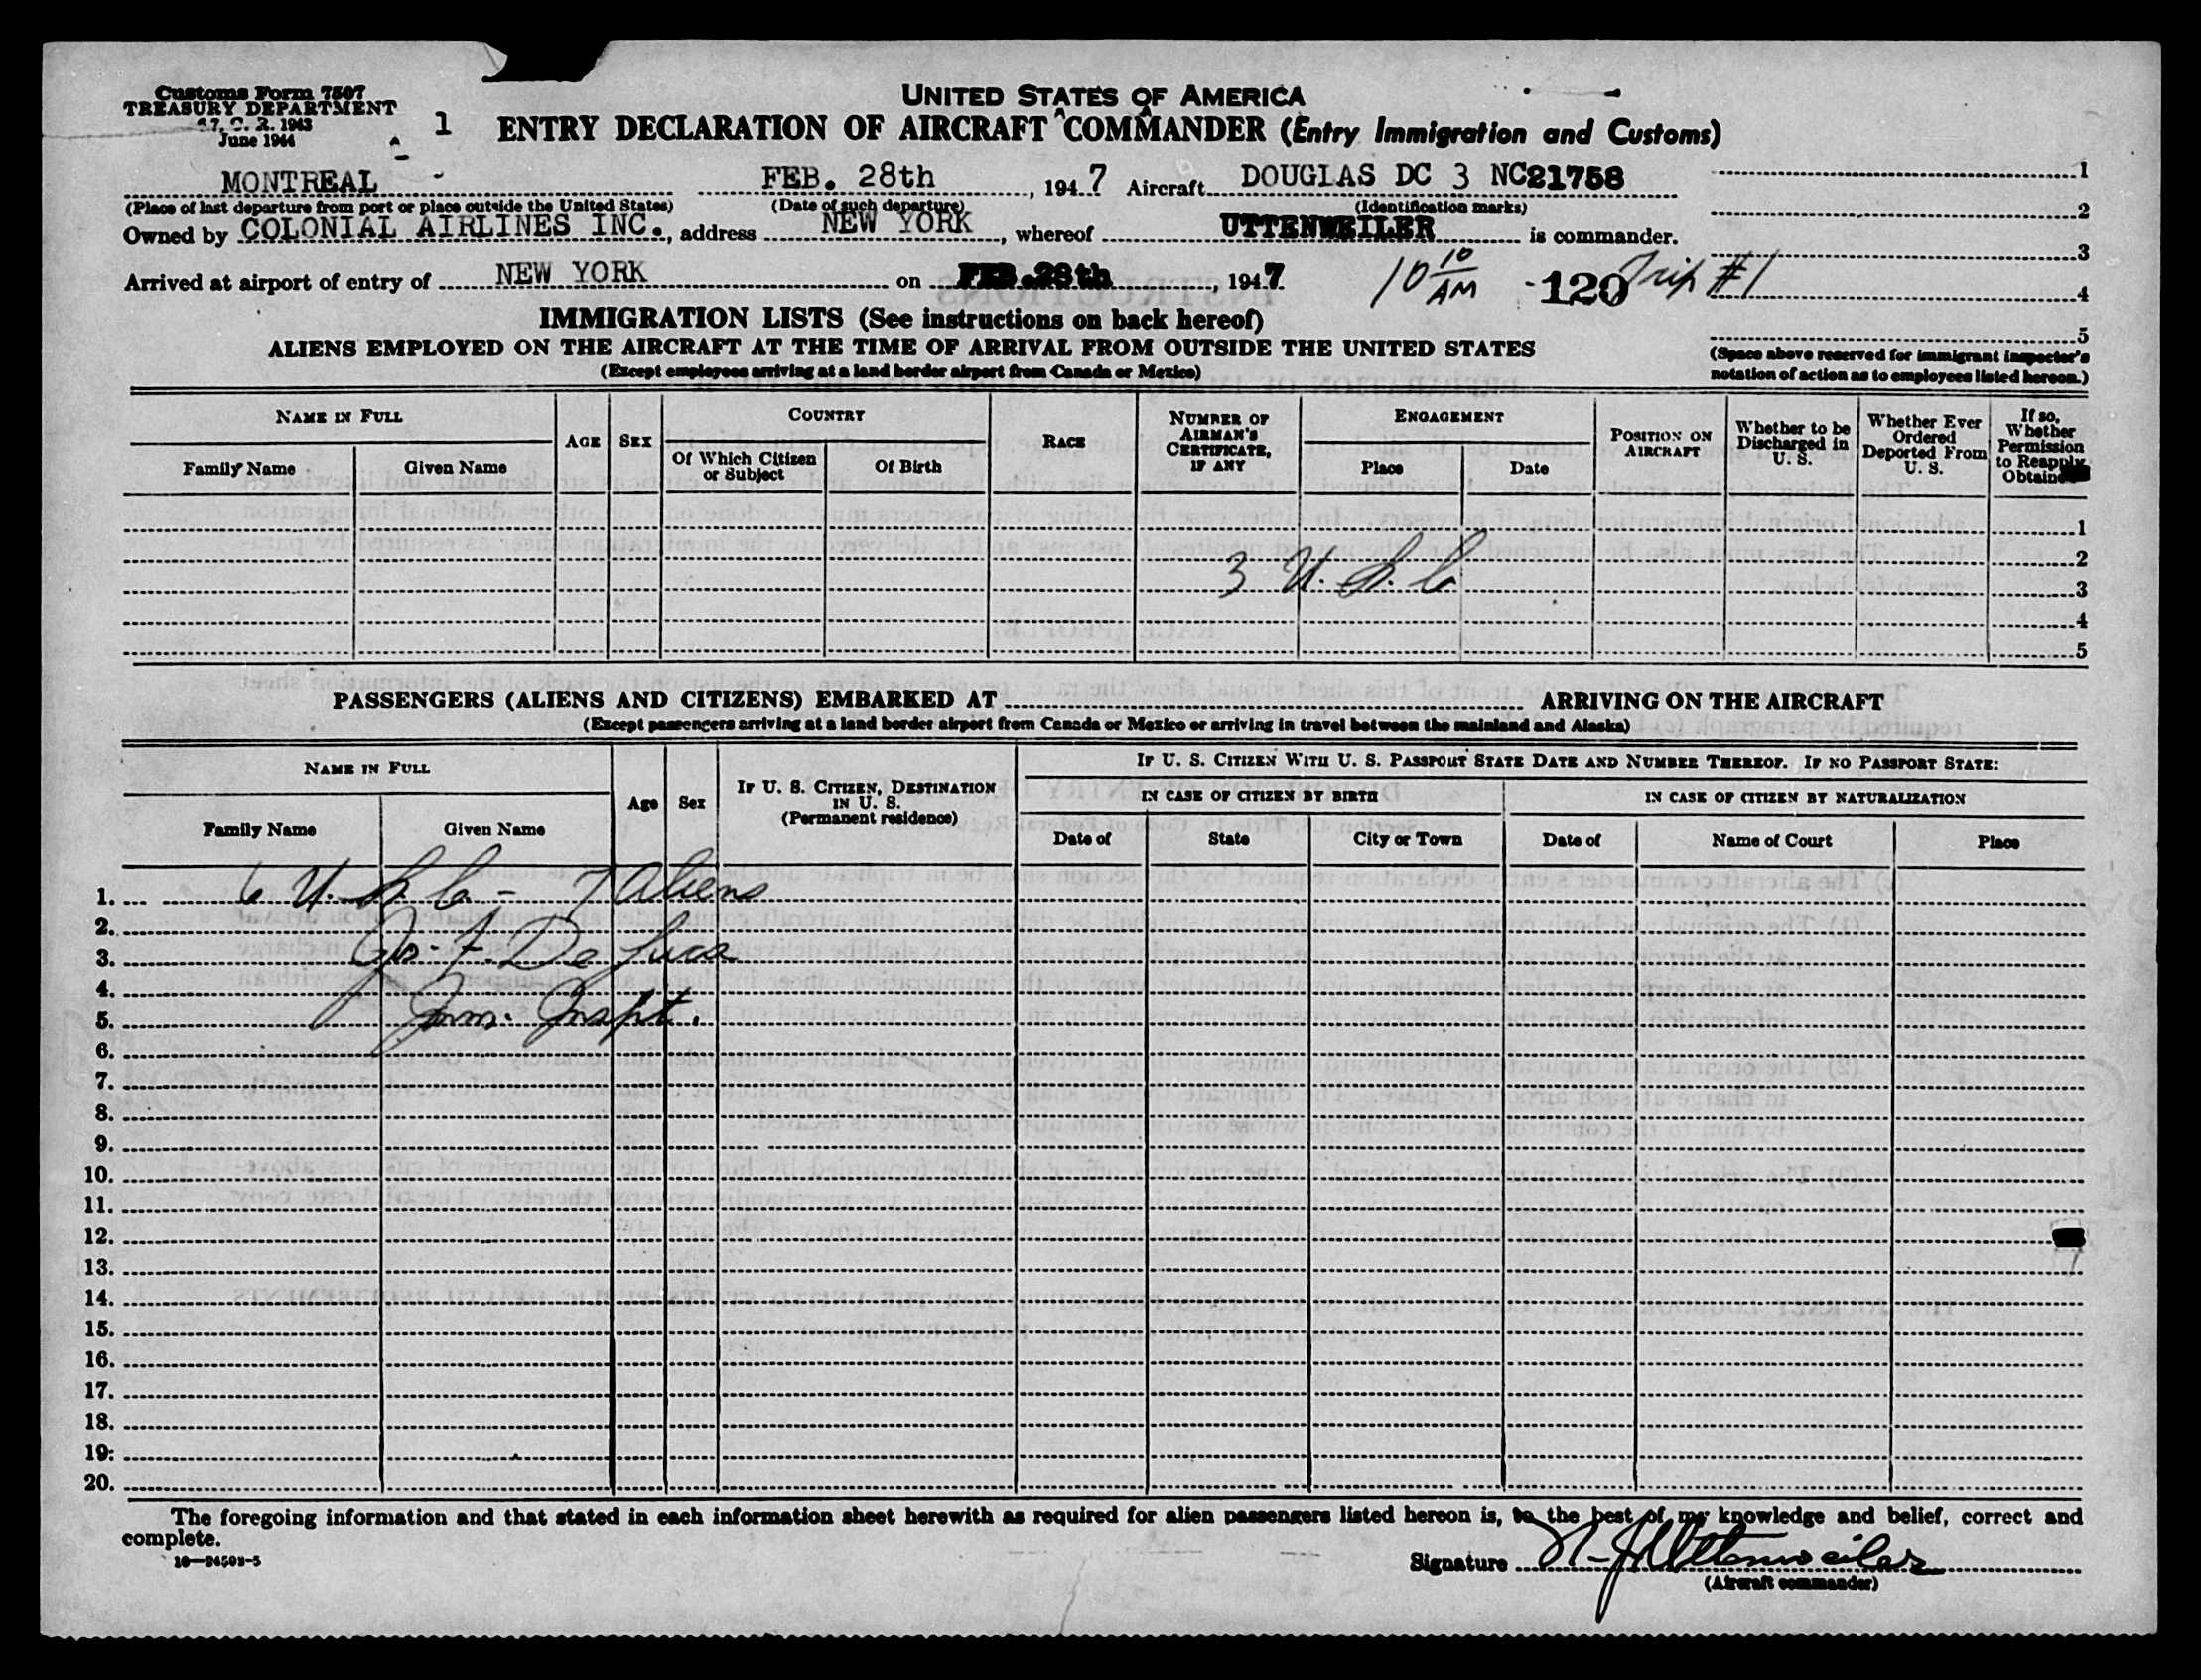 Customs Form 7507
TREASURY DEPARTMENT
June 1944
1
UNITED STATES OF AMERICA
ENTRY DECLARATION OF AIRCRAFT COMMANDER (Entry Immigration and Customs)
MONTREAL FEB. 28th, 1947 Aircraft DOUGLAS DC 3 NC21758
(Place of last departure from port or place outside the United States) (Date of such departure) (Identification marks)
Owned by COLONIAL AIRLINES INC., address NEW YORK, whereof UTTENWEILER is commander.
Arrived at airport of entry of NEW YORK on FEB.28th, 1947 10 10 AM -120 Trip #1
1
2
3
4
5
(Space above reserved for immigrant inspector's notation of action as to employees listed hereon.)
IMMIGRATION LISTS (See instructions on back hereof)
ALIENS EMPLOYED ON THE AIRCRAFT AT THE TIME OF ARRIVAL FROM OUTSIDE THE UNITED STATES
(Except employees arriving at a land border airport from Canada or Mexico)
NAME IN FULL
Family Name
Given Name
AGE
SEX
COUNTRY
Of Which Citizen or Subject
Of Birth
RACE
NUMBER OF AIRMAN'S CERTIFICATE, IF ANY
ENGAGEMENT
Place
Date
POSITION ON AIRCRAFT
Whether to be Discharged in U. S.
Whether Ever Ordered Deported From U. S.
If so, Whether Permission to Reapply
1
2
3 U. S. C
3
4
5
PASSENGERS (ALIENS AND CITIZENS) EMBARKED AT ARRIVING ON THE AIRCRAFT
(Except passengers arriving at a land border airport from Canada or Mexico or arriving in travel between the mainland and Alaska)
NAME IN FULL
Family Name
Given Name
Age
Sex
IF U. S. CITIZEN, DESTINATION IN U. S.
(Permanent residence)
IF U. S. CITIZEN WITH U. S. PASSPORT STATE DATE AND NUMBER THEREOF. IF NO PASSPORT STATE:
IN CASE OF CITIZEN BY BIRTH
IN CASE OF CITIZEN BY NATURALIZATION
Date of
State
City or Town
Date of
Name of Court
Place
1. 6 U. S. C. - 7 Aliens
2.
3. De Luca
4.
5. Imm. Inspt.
6.
7.
8.
9.
10.
11.
12.
13.
14.
15.
16.
17.
18.
19.
20.
The foregoing information and that stated in each information sheet herewith as required for alien passengers listed hereon is, to the best of my knowledge and belief, correct and
complete.
Signature Uttenweiler
(Aircraft commander)